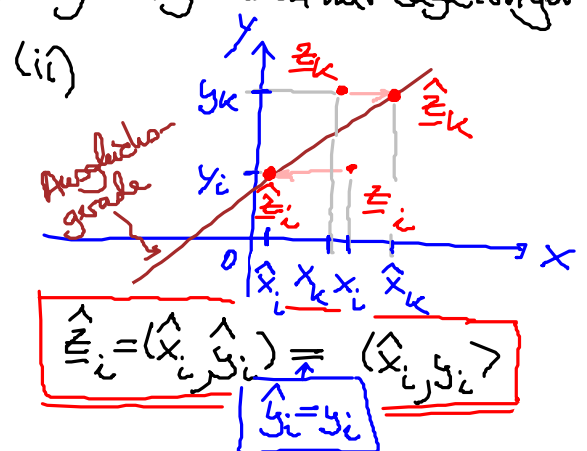 (ii)
y
z_k
y_k
ẑ_k
Ausgleichs-
gerade
y_i
ẑ_i
z_i
0
x̂_i x_k x_i x̂_k
x
ẑ_i = (x̂_i, ŷ_i) = (x̂_i, y_i)
ŷ_i = y_i